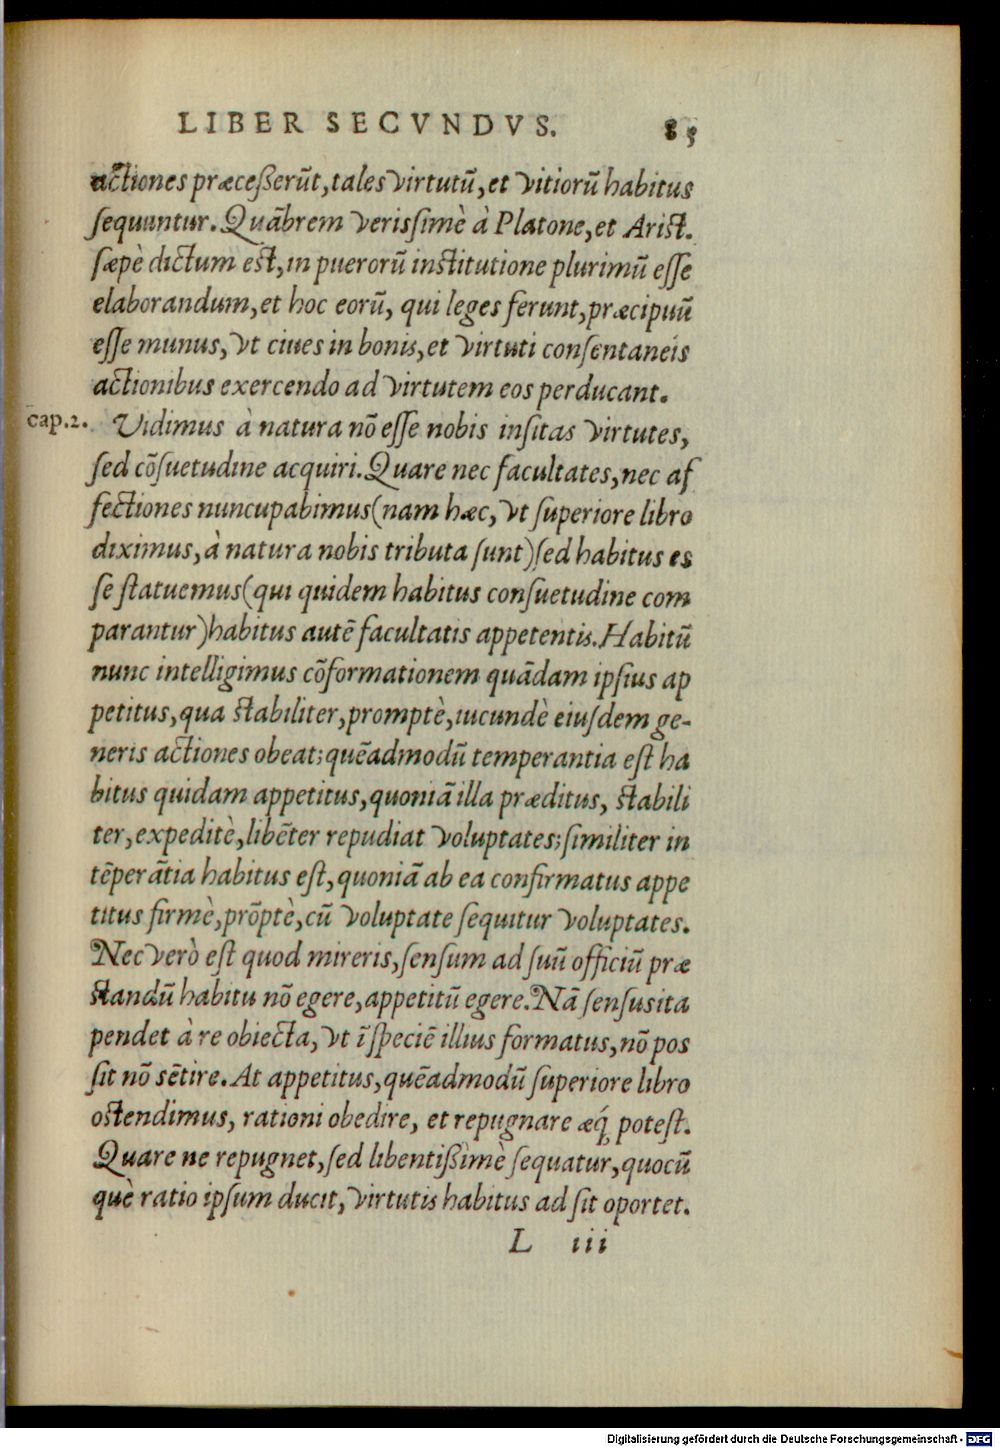 LIBER SECVNDVS. 85
actiones præceßerūt, tales virtutū, et vitiorū habitus
sequuntur. Quābrem verissimè à Platone, et Arist.
sæpè dictum est, in puerorū institutione plurimū esse
elaborandum, et hoc eorū, qui leges ferunt, præcipuū
esse munus, vt ciues in bonis, et virtuti consentaneis
actionibus exercendo ad virtutem eos perducant.
cap.2. Vidimus à natura nō esse nobis insitas virtutes,
sed cōsuetudine acquiri. Quare nec facultates, nec af
fectiones nuncupabimus (nam hæc, vt superiore libro
diximus, à natura nobis tributa sunt) sed habitus es
se statuemus (qui quidem habitus consuetudine com
parantur) habitus autē facultatis appetentis. Habitū
nunc intelligimus cōformationem quādam ipsius ap
petitus, qua stabiliter, promptè, iucundè eiusdem ge-
neris actiones obeat; quēadmodū temperantia est ha
bitus quidam appetitus, quoniā illa præditus, stabili
ter, expeditè, libēter repudiat voluptates; similiter in
tēperātia habitus est, quoniā ab ea confirmatus appe
titus firmè, prōptè, cū voluptate sequitur voluptates.
Nec verò est quod mireris, sensum ad suū officiū præ
standū habitu nō egere, appetitū egere. Nā sensus ita
pendet à re obiecta, vt ī speciē illius formatus, nō pos
sit nō sētire. At appetitus, quēadmodū superiore libro
ostendimus, rationi obedire, et repugnare æq́; potest.
Quare ne repugnet, sed libentißimè sequatur, quocū
què ratio ipsum ducit, virtutis habitus ad sit oportet.
L iii
Digitalisierung gefördert durch die Deutsche Forschungsgemeinschaft - DFG